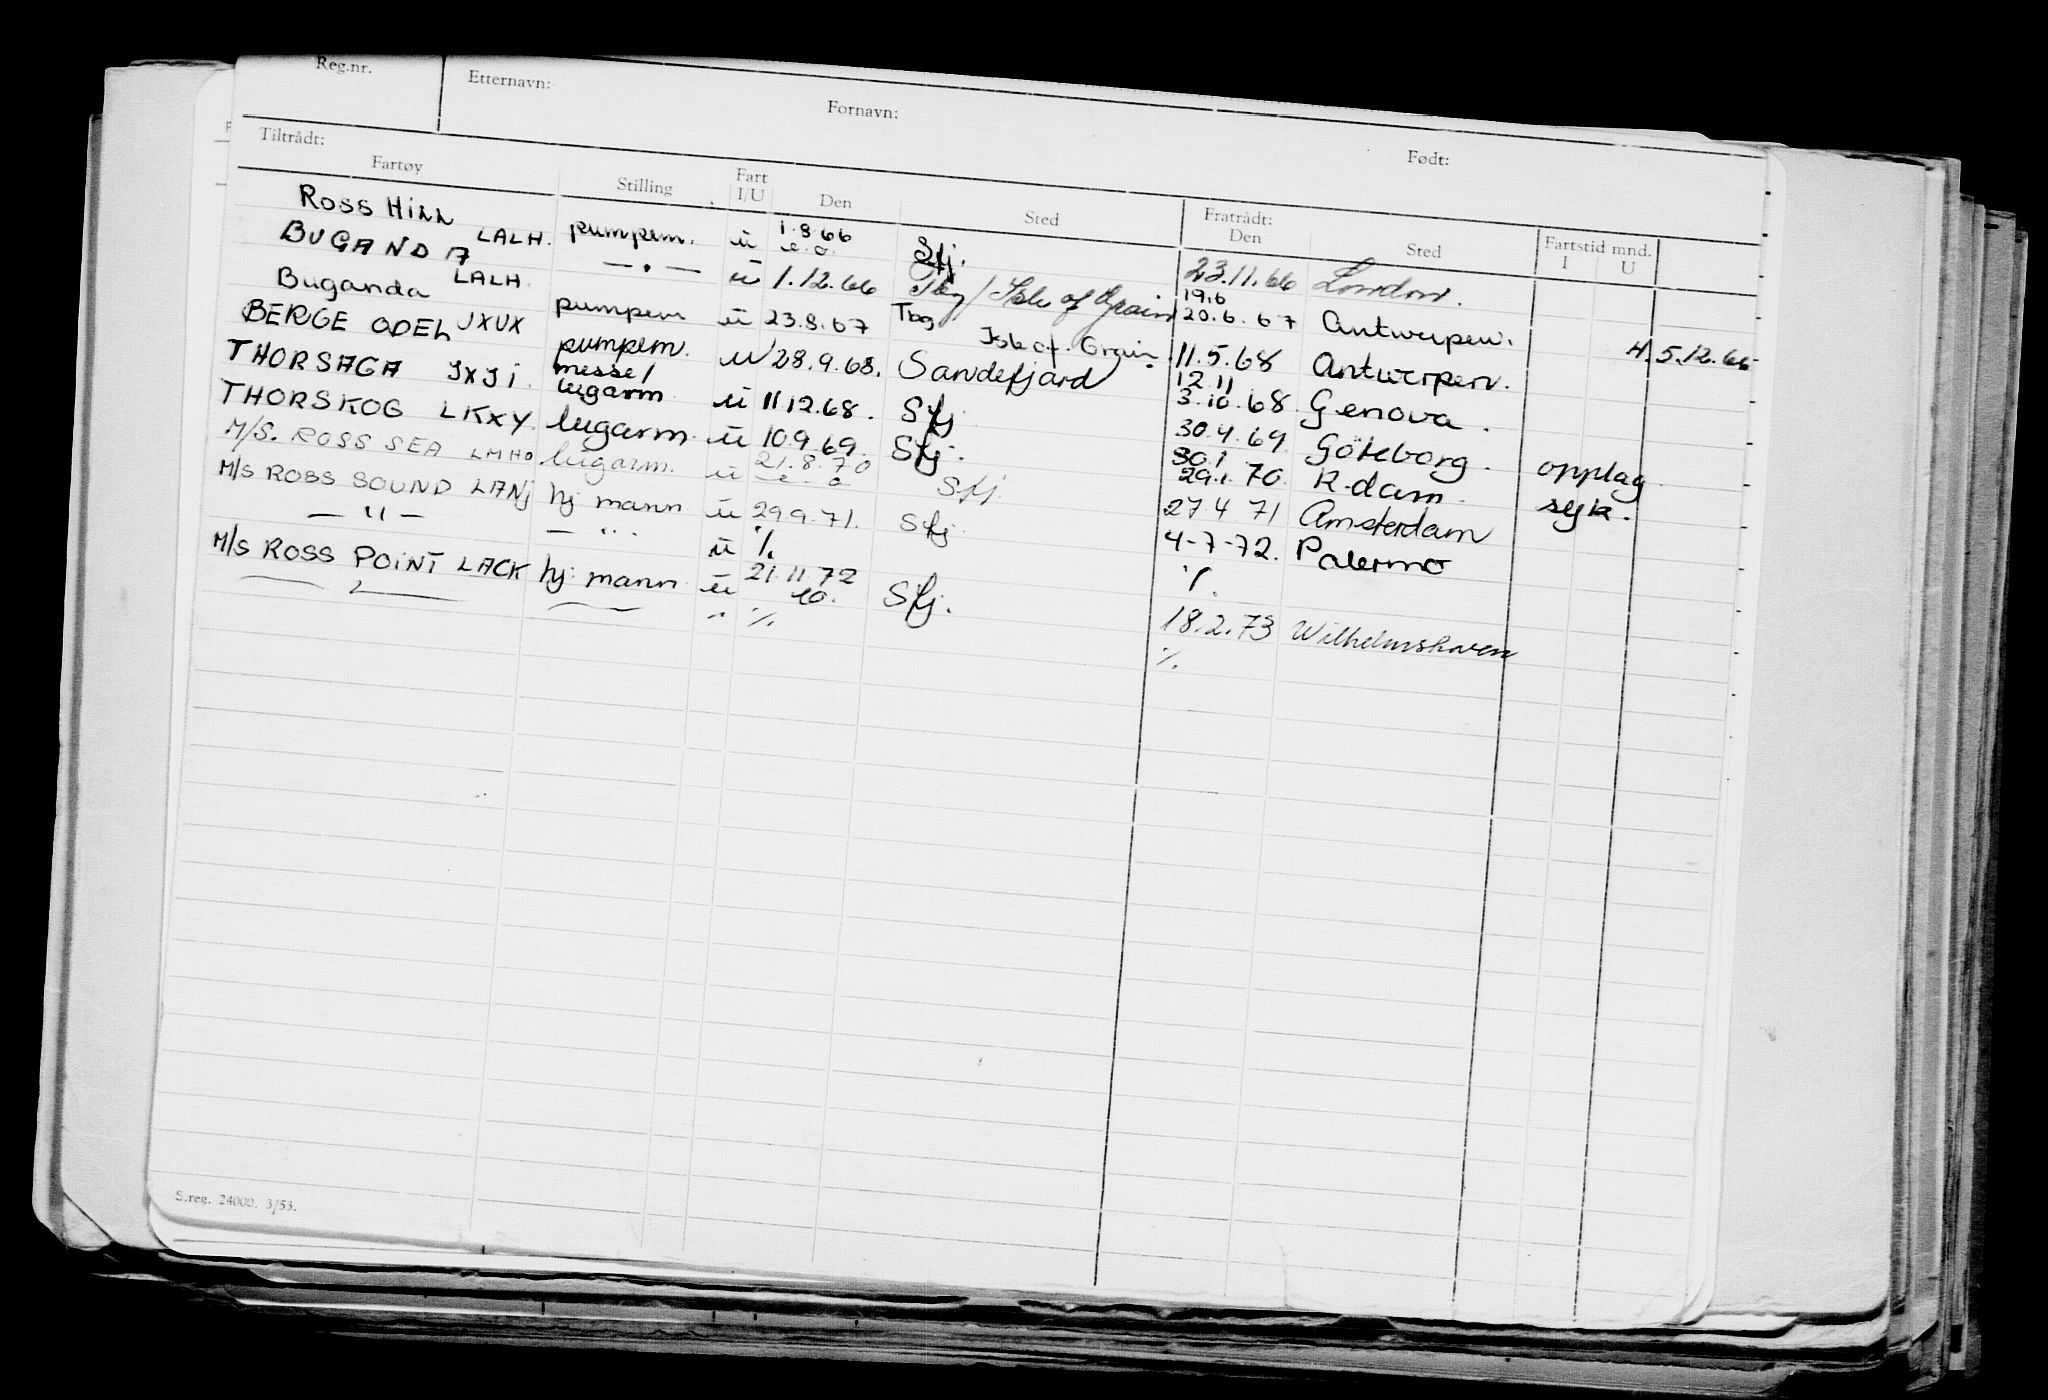 Reg.nr. Etternavn: Fornavn: Født:
Tiltrådt: Fratrådt:
Fartøy Stilling Fart I/U Den Sted Den Sted Fartstid mnd. I U
ROSS HILL LALH. pumpem. u 1.8.66 e.o. Sfj. 23.11.66 London.
BUGANDA LALH. —"— u 1.12.66 Tbg/Isle of Grain 19.6 20.6.67 Antwerpen. H. 5.12.66
Buganda JXUX pumpem u 23.8.67 Tbg Isle of Grain. 11.5.68 Antwerpen.
BERGE ODEL pumpem. u 28.9.68. Sandefjord 12.11 3.10.68 Genova.
THORSAGA JXJI. messe/lugarm u 11.12.68. Sfj 30.4.69 Göteborg. opplag
THORSKOG LKXY lugarm u 10.9.69. Sfj. 30.1 29.1.70. R.dam. syk.
M/S. ROSS SEA LMHO lugarm. u 21.8.70 e.o Sfj. 27.4 71 Amsterdam
M/S ROSS SOUND LANJ hj. mann u 29.9.71. Sfj 4-7-72. Palermo
—"— —"— u %. %.
M/S ROSS POINT LACK hj. mann u 21.11.72 10. Sfj. 18.2.73 Wilhelmshaven
" %. %.
S.reg. 24000. 3/53.